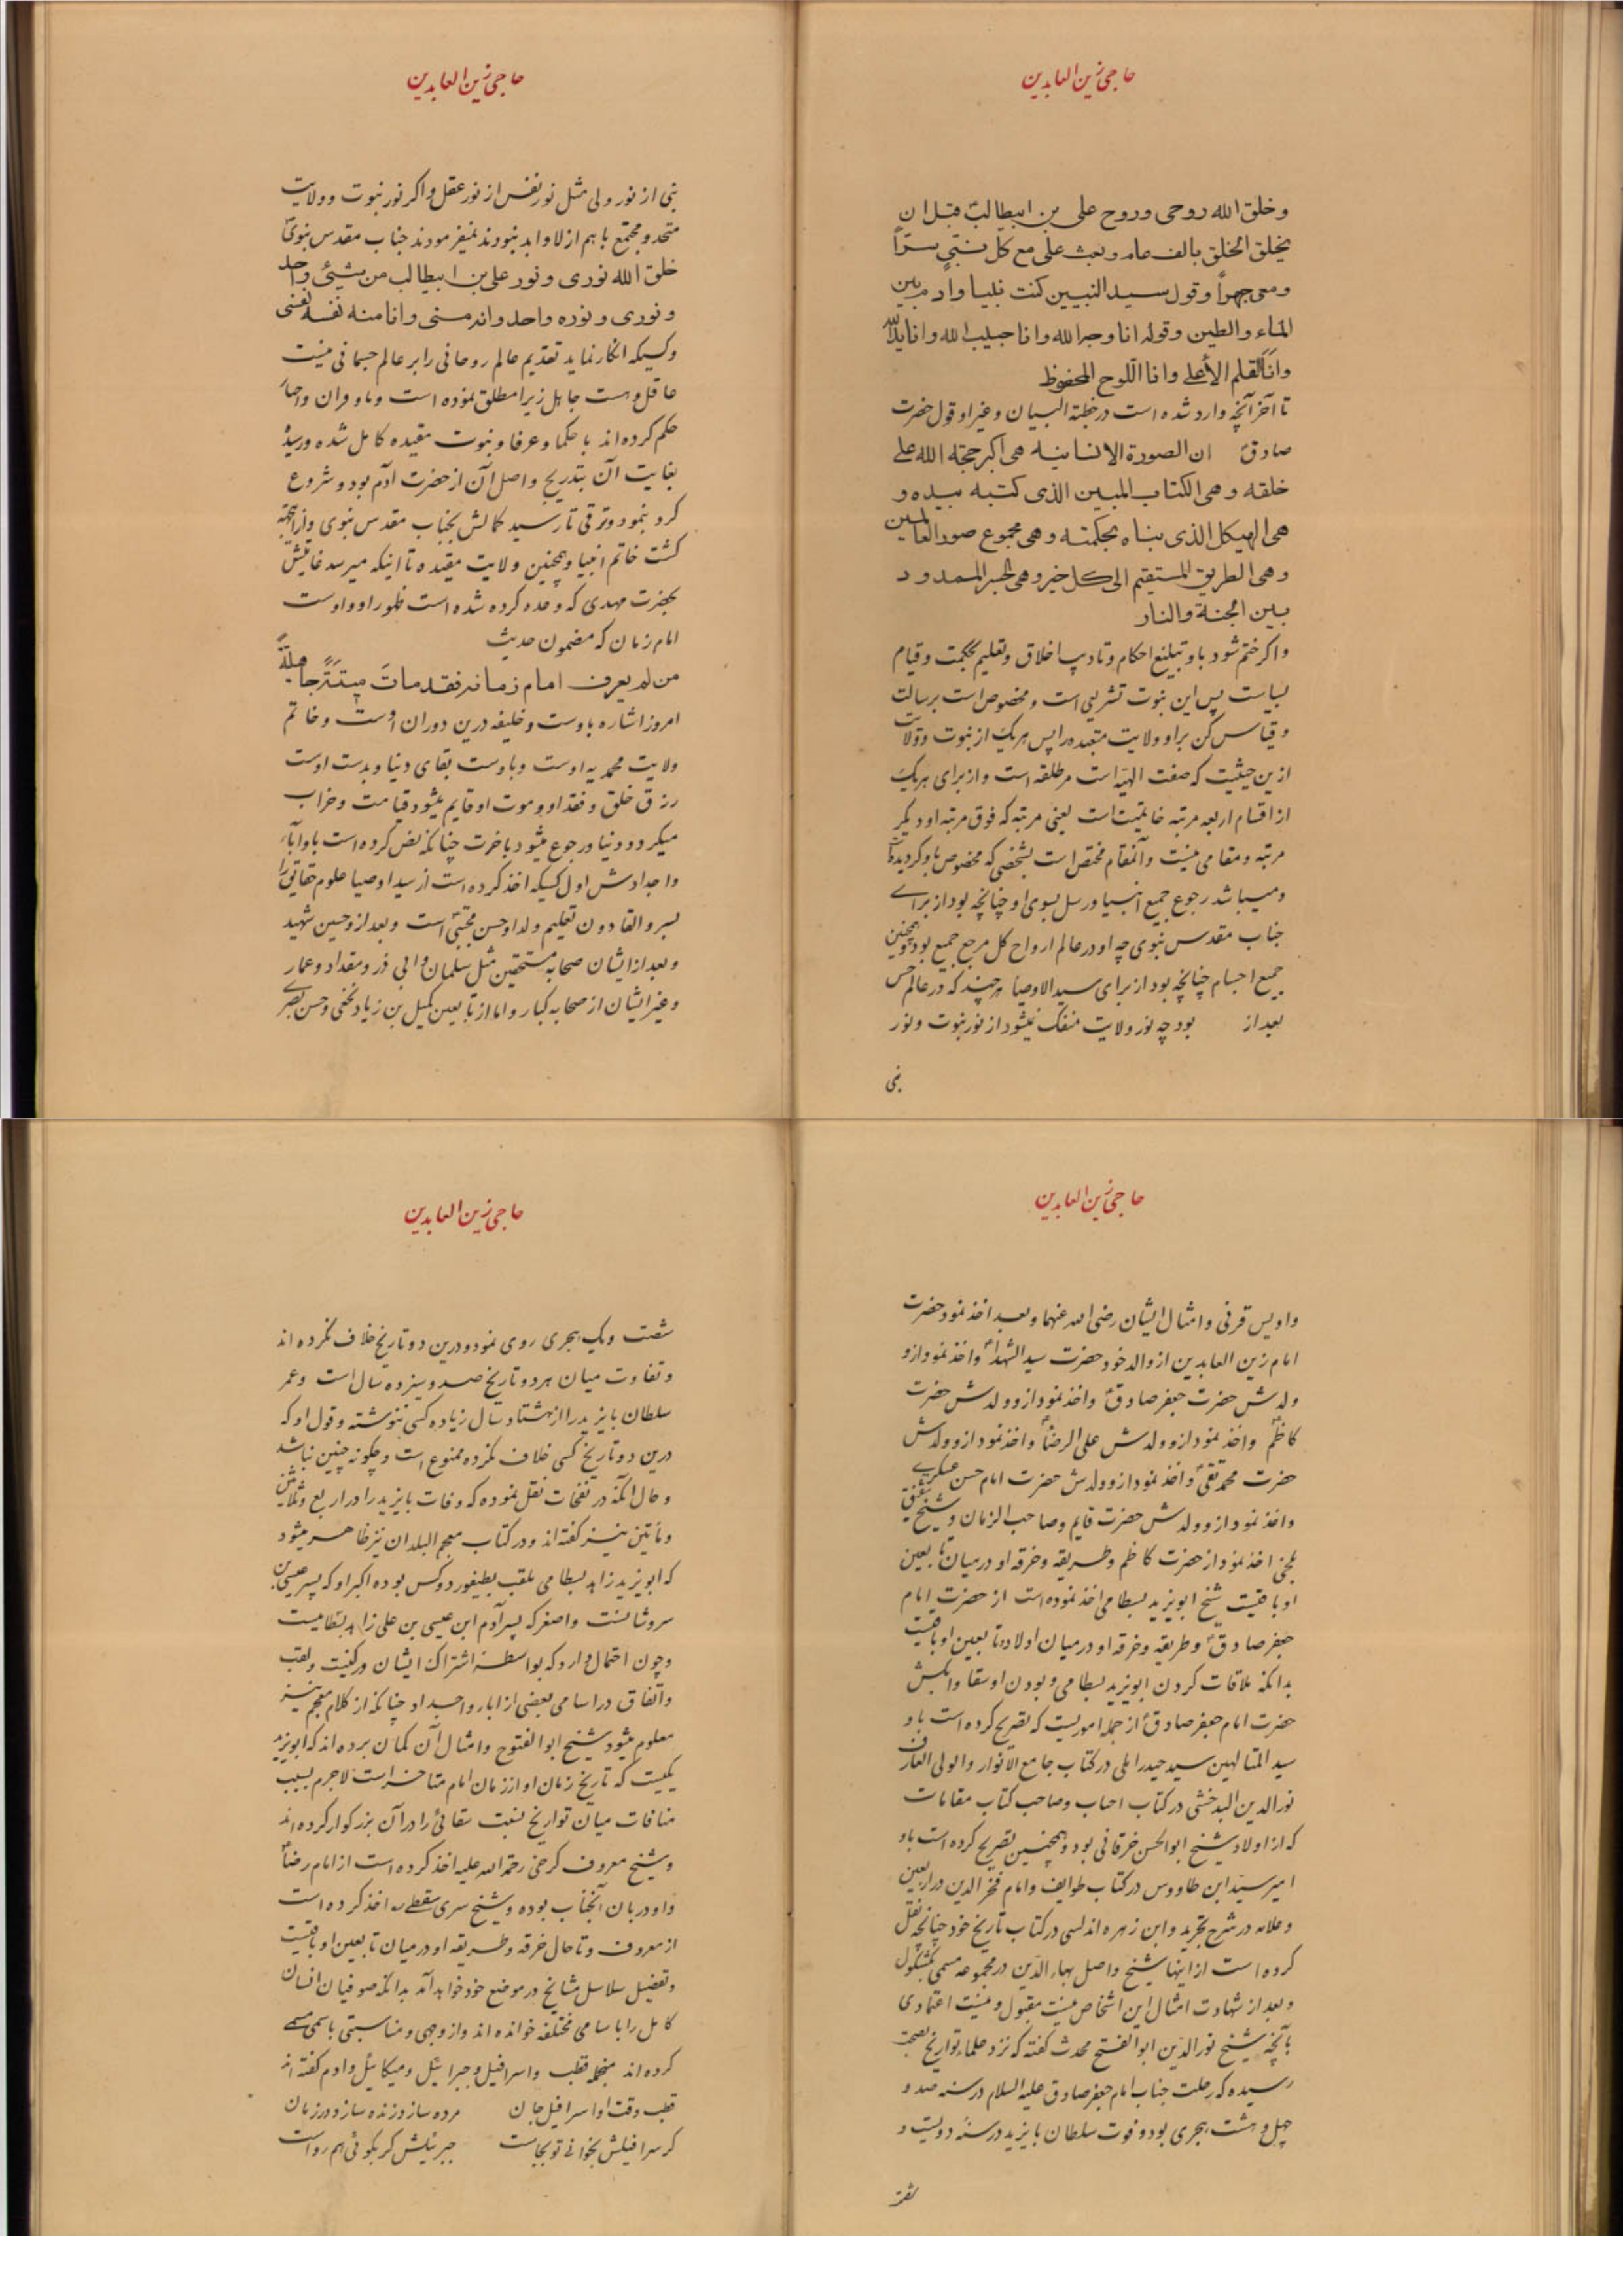 حاجی زین العابدین
وخلق الله روحی وروح علی بن ابیطالب قبل ان
یخلق الخلق بالف عام وبعث علی مع کل نبی سراً
ومعی جهراً وقول سید النبیین کنت نبیا وآدم بین
الماء والطین وقوله انا وجه الله وانا حبیب الله وانا ید الله
وانا القلم الأعلی وانا اللوح المحفوظ
تا آخر آنچه وارد شده است در خطبة البیان وغیر او قول حضرت
صادق ان الصورة الانسانیه هی اکبر حجة الله علی
خلقه وهی الکتاب المبین الذی کتبه بیده و
هی الهیکل الذی بناه بحکمته وهی مجموع صور العالمین
وهی الطریق المستقیم الی کل خیر وهی الجسر الممدود
بین الجنة والنار
واکر ختم شود باو تبلیغ احکام وتادیب اخلاق وتعلیم بحکمت وقیام
بسیاست پس این نبوت تشریعی است ومخصوص است برسالت
وقیاس کن براو ولایت مقیده را پس هریک از نبوت وولایت
ازین حیثیت که صفت الهیه است مرطلقه است واز برای هریک
از اقسام اربعه مرتبه خاتمیت است یعنی مرتبه که فوق مرتبه او دیگر
مرتبه ومقامی نیست وآنمقام مختص است بشخصی که مخصوص باو گردیده
ومیباشد رجوع جمیع انبیا ورسل بسوی او چنانچه بود از برای
جناب مقدس نبوی چه او در عالم ارواح کل مرجع جمیع بود وهمچنین
جمیع اجسام چنانچه بود از برای سید الاوصیا هرچند که در عالم حس
بعد از بود چه نور ولایت منفک نمیشود از نور نبوت ونور
نبی
حاجی زین العابدین
نبی از نور ولی مثل نور نفس از نور عقل واکر نور نبوت وولایت
متحد ومجتمع باهم ازلا وابد نبودند نمیفرمودند جناب مقدس نبوی
خلق الله نوری ونور علی بن ابیطالب من شیئ واحد
ونوری ونوره واحد وانه منی وانا منه نفسه نفسی
وکسیکه انکار نماید تقدیم عالم روحانی را بر عالم جسمانی نیست
عاقل وهست جاهل زیرا مطلق نموده است
حکم کرده اند باحکما وعرفا ونبوت مقیده کامل شده ورسیده
بغایت آن بتدریج واصل آن از حضرت آدم بود وشروع
کرد بنمو وترقی تا رسید کمالش بجناب مقدس نبوی وازاینجهة
کشت خاتم انبیا وهمچنین ولایت مقیده تا اینکه میرسد غایتش
بحضرت مهدی که وعده کرده شده است ظهور او واوست
امام زمان که مضمون حدیث
من لم یعرف امام زمانه فقد مات میتةً جاهلیةً
امروز اشاره باوست وخلیفه درین دوران اوست وخاتم
ولایت محمدیه اوست وباوست بقای دنیا وبدست اوست
رزق خلق وفقد او وموت او قایم میشود قیامت وخراب
میکردد دنیا ورجوع میشود باخرت چنانکه نص کرده است باو آباء
واجدادش اول کسیکه اخذ کرده است از سید اوصیا علوم حقایق را
بسر والقا دون تعلیم ولد او حسن مجتبی است وبعد از وحسین شهید
وبعد از ایشان صحابه مستحقین مثل سلمان وابی ذر ومقداد وعمار
وغیر ایشان از صحابه کبار واما از تابعین کمیل بن زیاد نخعی وحسن بصری
حاجی زین العابدین
واویس قرنی وامثال ایشان رضی الله عنهما وبعد اخذ نمود حضرت
امام زین العابدین از والد خود حضرت سید الشهدا واخذ نمود ازو
ولدش حضرت جعفر صادق واخذ نمود ازو ولدش حضرت
کاظم واخذ نمود ازو ولدش علی الرضا واخذ نمود ازو ولدش
حضرت محمد تقی واخذ نمود ازو ولدش حضرت امام حسن عسکری
واخذ نمود ازو ولدش حضرت قایم وصاحب الزمان وشیخ شقیق
بلخی اخذ نمود از حضرت کاظم وطریقه وخرقه او درمیان تابعین
او باقیست شیخ ابویزید بسطامی اخذ نموده است از حضرت امام
جعفر صادق وطریقه وخرقه او درمیان اولاد وتابعین او باقیست
بدانکه ملاقات کردن ابویزید بسطامی وبودن او سقا وآبکش
حضرت امام جعفر صادق از جمله اموریست که تصریح کرده است باو
سید المتالهین سید حیدر آملی در کتاب جامع الانوار والولی العارف
نورالدین البدخشی در کتاب احباب وصاحب کتاب مقامات
که از اولاد شیخ ابوالحسن خرقانی بود وهمچنین تصریح کرده است باو
امیر سید ابن طاووس در کتاب طوایف وامام فخرالدین در اربعین
وعلامه در شرح تجرید وابن زهره اندلسی در کتاب تاریخ خود چنانچه نقل
کرده است از اینها شیخ واصل بهاء الدین در مجموعه مسمی بکشکول
وبعد از شهادت امثال این اشخاص نیست مقبول ونیست اعتمادی
بآنچه شیخ نورالدین ابوالفتح محدث کفته که نزد علماء تواریخ بصحت
رسیده که رحلت جناب امام جعفر صادق علیه السلام در سنه صد و
چهل وهشت هجری بود وفوت سلطان بایزید در سنهٔ دویست و
شصت
حاجی زین العابدین
شصت ویک هجری روی نمود ودرین دو تاریخ خلاف نکرده اند
وتفاوت میان هردو تاریخ صد وسیزده سال است وعمر
سلطان بایزید را از هشتاد سال زیاده کسی ننوشته وقول او که
درین دو تاریخ کسی خلاف نکرده ممنوع است وچکونه چنین نباشد
وحال آنکه در نفحات نقل نموده که وفات بایزید را در اربع وثلاثین
ومأتین نیز کفته اند ودر کتاب معجم البلدان نیز ظاهر میشود
که ابویزید زاهد بسطامی ملقب بطیفور دو کس بوده اکبر او که پسر عیسی بن
سروشانست واصغر که پسر آدم ابن عیسی بن علی زاهد بسطامیست
وچون احتمال دارد که بواسطهٔ اشتراک ایشان در کنیت ولقب
واتفاق در اسامی بعضی از آباء واجداد چنانکه از کلام معجم نیز
معلوم میشود شیخ ابوالفتوح وامثال آن کمان برده اند که ابویزید
یکیست که تاریخ زمان او از زمان امام متاخر است لاجرم بسبب
منافات میان تواریخ نسبت سقائی را در آن بزرکوار کرده اند
وشیخ معروف کرخی رحمة الله علیه اخذ کرده است از امام رضا
واو دربان آنجناب بوده وشیخ سری سقطی اخذ کرده است
از معروف وتا حال خرقه وطریقه او درمیان تابعین او باقیست
وتفضیل سلاسل مشایخ در موضع خود خواهد آمد بدانکه صوفیان انسان
کامل را باسامی مختلفه خوانده اند واز وجهی ومناسبتی باسمی مسمی
کرده اند منجمله قطب واسرافیل وجبرائیل ومیکائیل وآدم کفته اند
قطب وقت او اسرافیل جان مرده سازد زنده سازد در زمان
کر سرافیلش بخوانی تو بجاست جبرئیلش کر بکوئی هم رواست